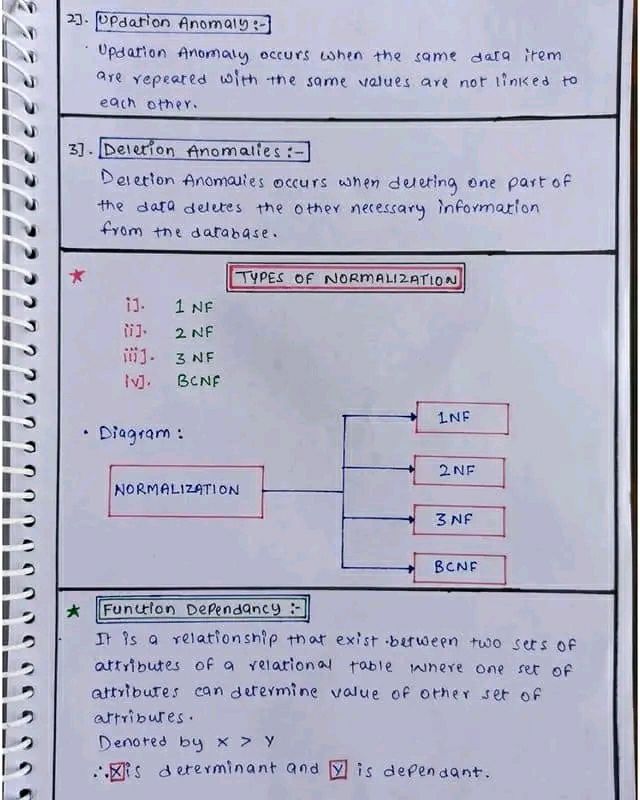 2]. Updation Anomaly :-
· Updation Anomaly occurs when the same data item
are repeated with the same values are not linked to
each other.
3]. Deletion Anomalies :-
Deletion Anomalies occurs when deleting one part of
the data deletes the other necessary information
from the database.
★ TYPES OF NORMALIZATION
i]. 1 NF
ii]. 2 NF
iii]. 3 NF
iv]. BCNF
• Diagram :
NORMALIZATION
1NF
2NF
3NF
BCNF
★ Function Dependancy :-
It is a relationship that exist between two sets of
attributes of a relational table where one set of
attributes can determine value of other set of
attributes.
Denoted by X > Y
∴ X is determinant and Y is dependant.